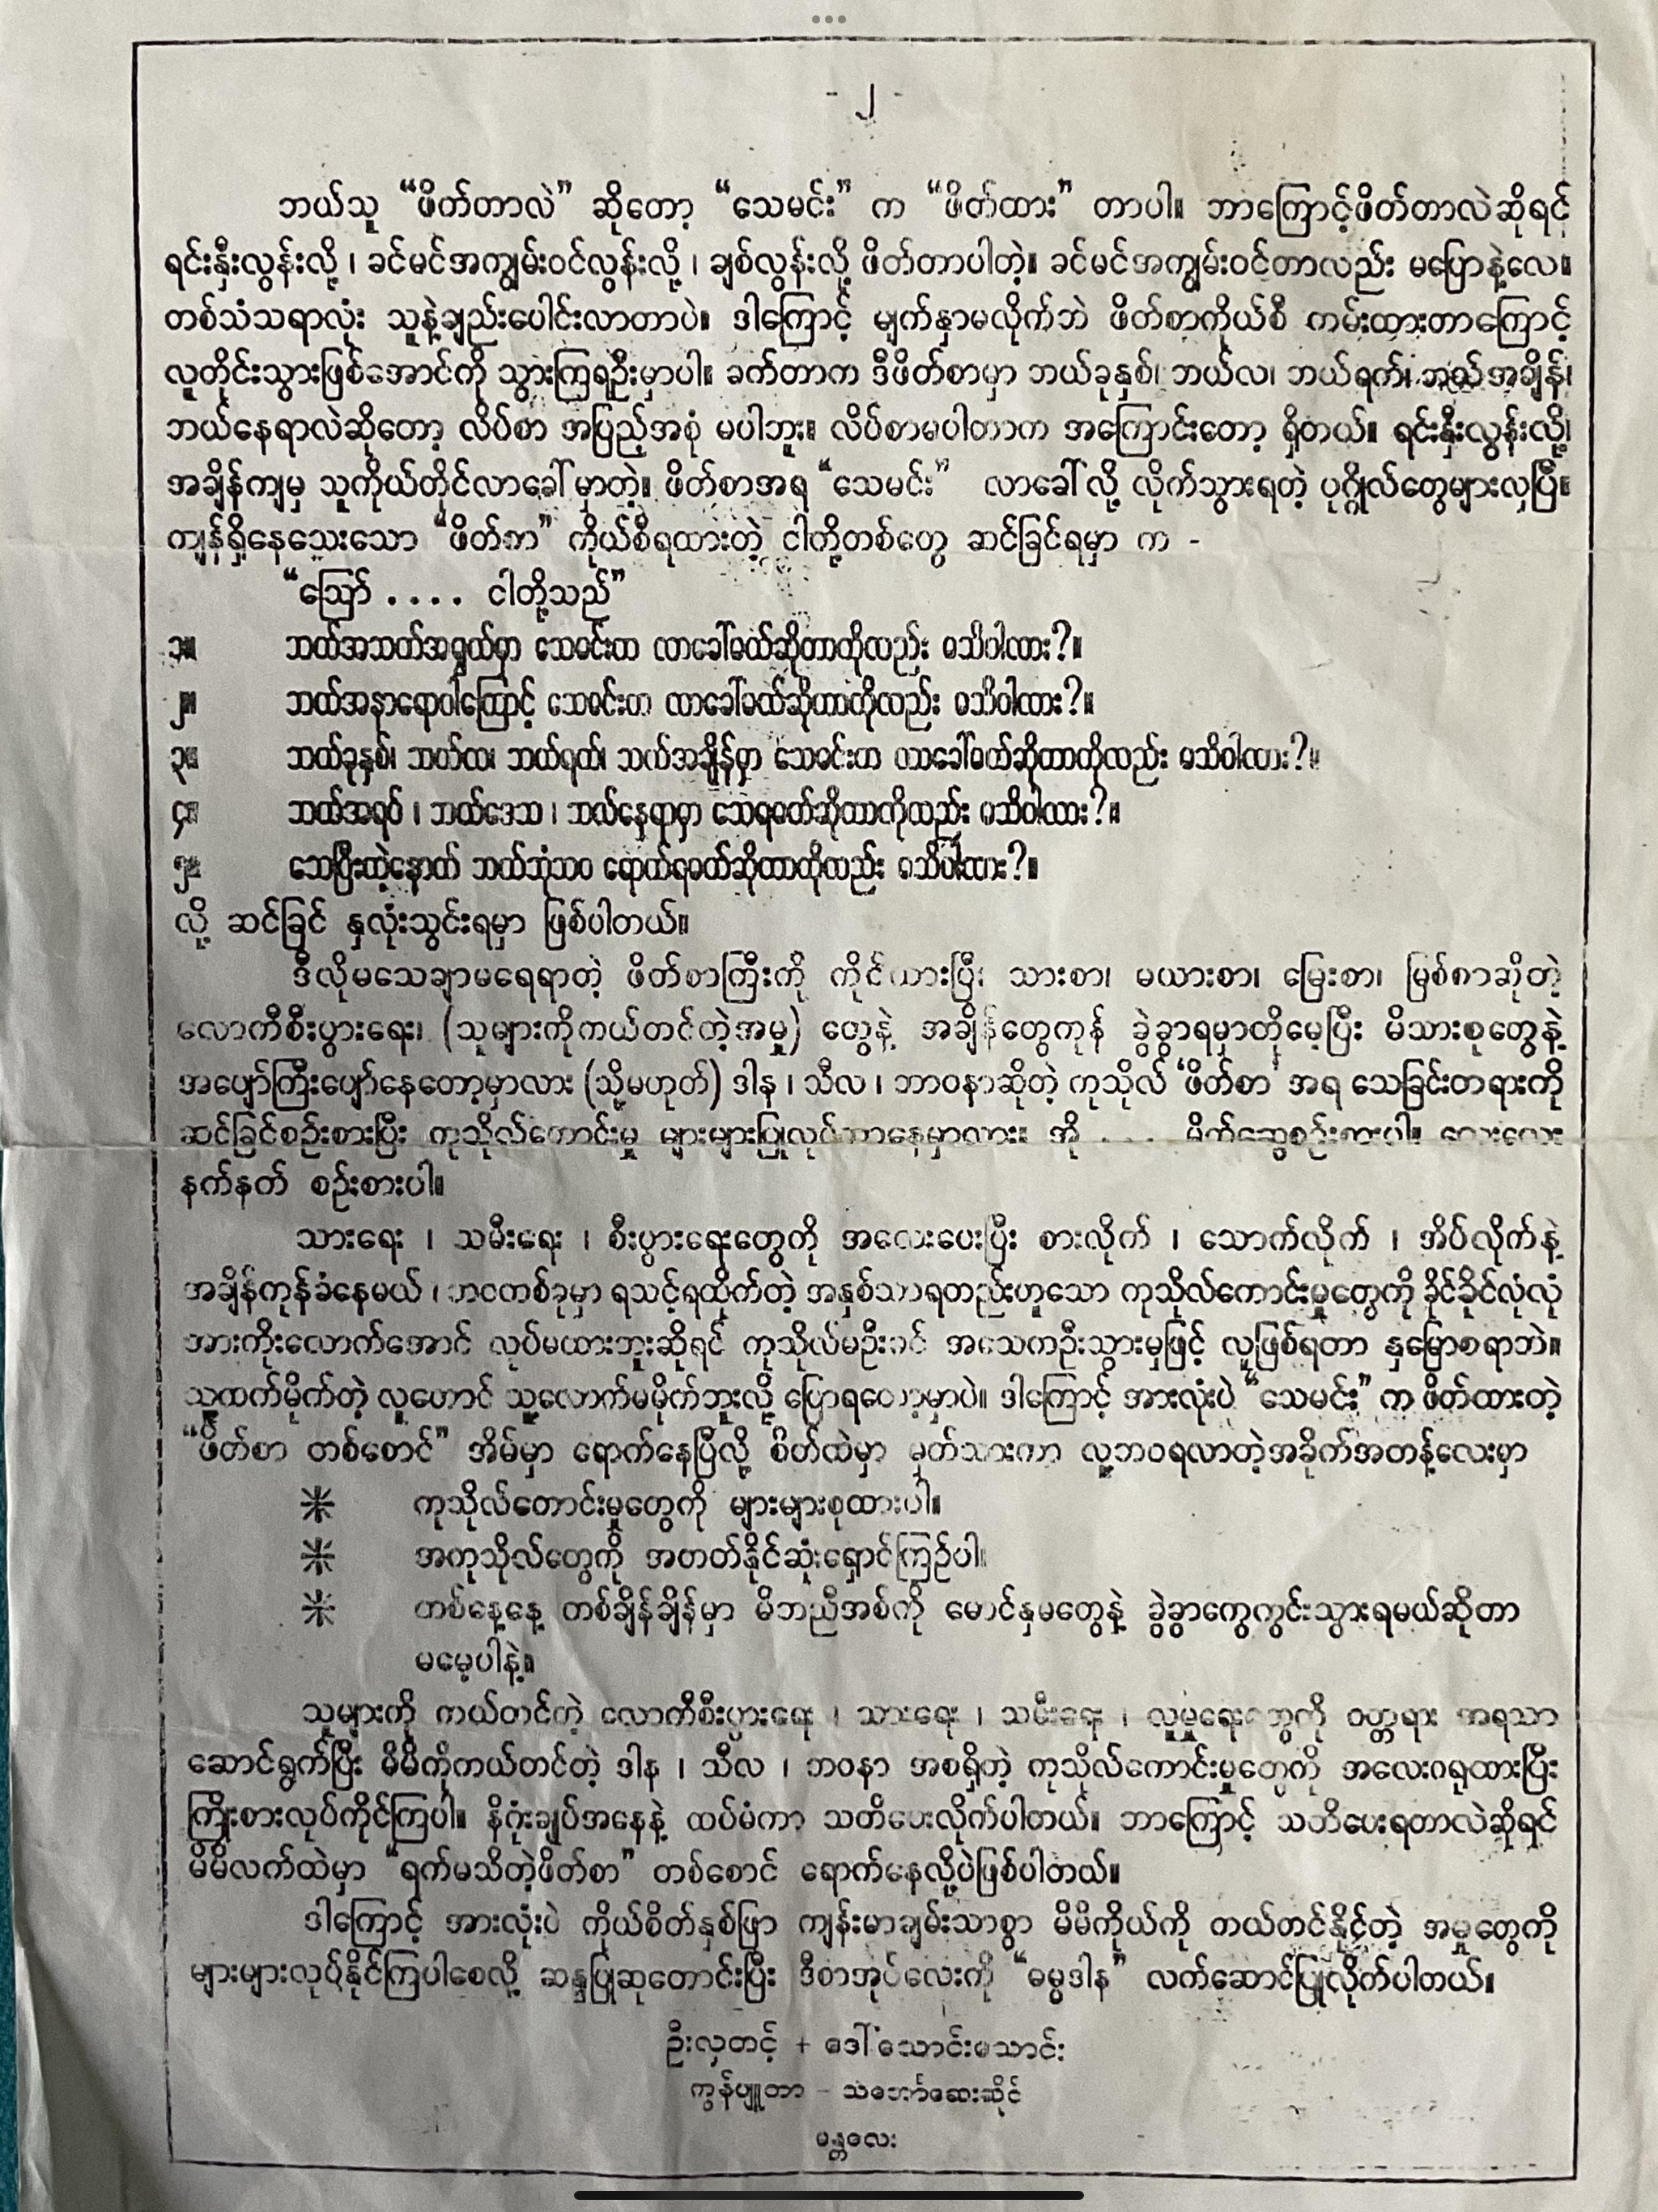 - ၂ -
ဘယ်သူ “ဖိတ်တာလဲ” ဆိုတော့ “သေမင်း” က “ဖိတ်ထား” တာပါ။ ဘာကြောင့်ဖိတ်တာလဲဆိုရင်
ရင်းနှီးလွန်းလို့ ၊ ခင်မင်အကျွမ်းဝင်လွန်းလို့ ၊ ချစ်လွန်းလို့ ဖိတ်တာပါတဲ့။ ခင်မင်အကျွမ်းဝင်တာလည်း မပြောနဲ့လေ။
တစ်သံသရာလုံး သူနဲ့ချည်းပေါင်းလာတာပဲ။ ဒါကြောင့် မျက်နှာမလိုက်ဘဲ ဖိတ်စာကိုယ်စီ ကမ်းထားတာကြောင့်
လူတိုင်းသွားဖြစ်အောင်ကို သွားကြရဦးမှာပါ။ ခက်တာက ဒီဖိတ်စာမှာ ဘယ်ခုနှစ်၊ ဘယ်လ၊ ဘယ်ရက်၊ ဘယ်အချိန်၊
ဘယ်နေရာလဲဆိုတော့ လိပ်စာ အပြည့်အစုံ မပါဘူး။ လိပ်စာမပါတာက အကြောင်းတော့ ရှိတယ်။ ရင်းနှီးလွန်းလို့၊
အချိန်ကျမှ သူကိုယ်တိုင်လာခေါ်မှာတဲ့။ ဖိတ်စာအရ “သေမင်း” လာခေါ်လို့ လိုက်သွားရတဲ့ ပုဂ္ဂိုလ်တွေများလှပြီ။
ကျန်ရှိနေသေးသော “ဖိတ်စာ” ကိုယ်စီရထားတဲ့ ငါတို့တစ်တွေ ဆင်ခြင်ရမှာ က -
“ဩော် .... ငါတို့သည်”
၁။ ဘယ်အသက်အရွယ်မှာ သေမင်းက လာခေါ်မယ်ဆိုတာကိုလည်း မသိပါလား?။
၂။ ဘယ်အနာရောဂါကြောင့် သေမင်းက လာခေါ်မယ်ဆိုတာကိုလည်း မသိပါလား?။
၃။ ဘယ်ခုနှစ်၊ ဘယ်လ၊ ဘယ်ရက်၊ ဘယ်အချိန်မှာ သေမင်းက လာခေါ်မယ်ဆိုတာကိုလည်း မသိပါလား?။
၄။ ဘယ်အရပ် ၊ ဘယ်ဒေသ ၊ ဘယ်နေရာမှာ သေရမယ်ဆိုတာကိုလည်း မသိပါလား?။
၅။ သေပြီးတဲ့နောက် ဘယ်ဘုံဘဝ ရောက်ရမယ်ဆိုတာကိုလည်း မသိပါလား?။
လို့ ဆင်ခြင် နှလုံးသွင်းရမှာ ဖြစ်ပါတယ်။
ဒီလိုမသေချာမရေရာတဲ့ ဖိတ်စာကြီးကို ကိုင်ထားပြီး သားစာ၊ မယားစာ၊ မြေးစာ၊ မြစ်စာဆိုတဲ့
လောကီစီးပွားရေး၊ (သူများကိုကယ်တင်တဲ့အမှု) တွေနဲ့ အချိန်တွေကုန် ခွဲခွာရမှာတိုမေ့ပြီး မိသားစုတွေနဲ့
အပျော်ကြီးပျော်နေတော့မှာလား (သို့မဟုတ်) ဒါန ၊ သီလ ၊ ဘာဝနာဆိုတဲ့ ကုသိုလ် ‘ဖိတ်စာ’ အရ သေခြင်းတရားကို
ဆင်ခြင်စဉ်းစားပြီး ကုသိုလ်ကောင်းမှု များများပြုလုပ်သွားနေမှာလား။ အို .... မိတ်ဆွေစဉ်းစားပါ။ လေးလေး
နက်နက် စဉ်းစားပါ။
သားရေး ၊ သမီးရေး ၊ စီးပွားရေးတွေကို အလေးပေးပြီး စားလိုက် ၊ သောက်လိုက် ၊ အိပ်လိုက်နဲ့
အချိန်ကုန်ခံနေမယ် ၊ ဘဝတစ်ခုမှာ ရသင့်ရထိုက်တဲ့ အနှစ်သာရတည်းဟူသော ကုသိုလ်ကောင်းမှုတွေကို ခိုင်ခိုင်လုံလုံ
အားကိုးလောက်အောင် လုပ်မထားဘူးဆိုရင် ကုသိုလ်မဦးခင် အသေကဦးသွားမှဖြင့် လူဖြစ်ရတာ နှမြောစရာဘဲ။
သူ့ထက်မိုက်တဲ့ လူဟောင် သူ့လောက်မမိုက်ဘူးလို့ ပြောရတော့မှာပဲ။ ဒါကြောင့် အားလုံးပဲ “သေမင်း” က ဖိတ်ထားတဲ့
“ဖိတ်စာ တစ်စောင်” အိမ်မှာ ရောက်နေပြီလို့ စိတ်ထဲမှာ မှတ်သားကာ လူ့ဘဝရလာတဲ့အခိုက်အတန့်လေးမှာ
* ကုသိုလ်ကောင်းမှုတွေကို များများစုထားပါ။
* အကုသိုလ်တွေကို အတတ်နိုင်ဆုံးရှောင်ကြဉ်ပါ။
* တစ်နေ့နေ့ တစ်ချိန်ချိန်မှာ မိဘညီအစ်ကို မောင်နှမတွေနဲ့ ခွဲခွာကွေကွင်းသွားရမယ်ဆိုတာ
မမေ့ပါနဲ့။
သူများကို ကယ်တင်တဲ့ လောကီစီးပွားရေး ၊ သားရေး ၊ သမီးရေး ၊ လူမှုရေးတွေကို ဝတ္တရား အရသာ
ဆောင်ရွက်ပြီး မိမိကိုကယ်တင်တဲ့ ဒါန ၊ သီလ ၊ ဘဝနာ အစရှိတဲ့ ကုသိုလ်ကောင်းမှုတွေကို အလေးဂရုထားပြီး
ကြိုးစားလုပ်ကိုင်ကြပါ။ နိဂုံးချုပ်အနေနဲ့ ထပ်မံကာ သတိပေးလိုက်ပါတယ်။ ဘာကြောင့် သတိပေးရတာလဲဆိုရင်
မိမိလက်ထဲမှာ “ရက်မသိတဲ့ဖိတ်စာ” တစ်စောင် ရောက်နေလို့ပဲဖြစ်ပါတယ်။
ဒါကြောင့် အားလုံးပဲ ကိုယ်စိတ်နှစ်ဖြာ ကျန်းမာချမ်းသာစွာ မိမိကိုယ်ကို ကယ်တင်နိုင်တဲ့ အမှုတွေကို
များများလုပ်နိုင်ကြပါစေလို့ ဆန္ဒပြုဆုတောင်းပြီး ဒီစာအုပ်လေးကို “ဓမ္မဒါန” လက်ဆောင်ပြုလိုက်ပါတယ်။
ဦးလှတင့် + ဒေါ်သောင်းသောင်း
ကွန်ပျူတာ - သဘော်ဆေးဆိုင်
မန္တလေး